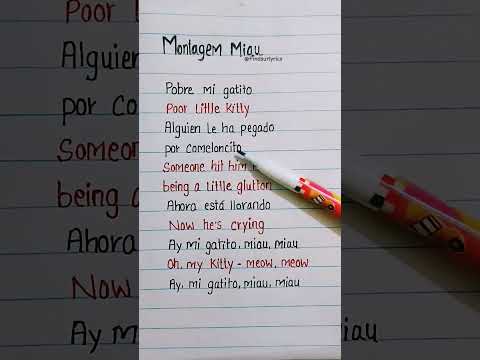 Montagem Miau
@Findourlyrics
Pobre mi gatito
Poor little Kitty
Alguien le ha pegado
por comeloncito
Someone hit him
being a little glutton
Ahora está llorando
Now he's crying
Ay mi gatito, miau, miau
Oh, my Kitty - meow, meow
Ay, mi gatito, miau, miau